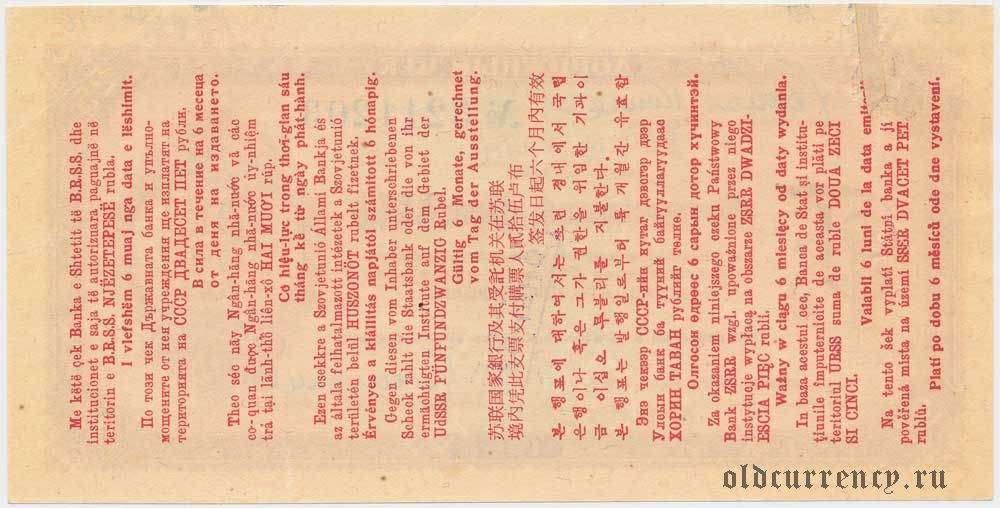 Me këtë çek Banka e Shtetit të B.R.S.S. dhe
institucionet e saja të autorizuara paguajnë në
teritorin e B.R.S.S. NJËZETEPESË rubla.
I vlefshëm 6 muaj nga data e lëshimit.
По този чек Държавната банка и упълно-
мощените от нея учреждения ще изплатят на
територията на СССР ДВАДЕСЕТ ПЕТ рубли.
В сила в течение на 6 месеца
от деня на издаването.
Theo séc này Ngân-hàng nhà-nước và các
cơ-quan được Ngân-hàng nhà-nước ủy-nhiệm
trả tại lãnh-thổ liên-xô HAI MƯƠI rúp.
Có hiệu-lực trong thời-gian sáu
tháng kể từ ngày phát-hành.
Ezen csekkre a Szovjetunió Állami Bankja és
az általa felhatalmazott intézetek a Szovjetunió
területén belül HUSZONÖT rubelt fizetnek.
Érvényes a kiállítás napjától számított 6 hónapig.
Gegen diesen vom Inhaber unterschriebenen
Scheck zahlt die Staatsbank oder die von ihr
ermächtigten Institute auf dem Gebiet der
UdSSR FÜNFUNDZWANZIG Rubel.
Gültig 6 Monate, gerechnet
vom Tag der Ausstellung.
苏联国家銀行及其受託机关在苏联
境内凭此支票支付購票人貳拾伍卢布
签发日起六个月内有效
본 행표에 대하여서는 쏘련 경내에서 국립
은행이나 혹은 그가 권한을 위임한 기관이
금 이십오 루블리를 지불한다.
본 행표는 발행일로부터 륙개월간 유효함
Энэ чекээр СССР-ийн нутаг дэвсгэр дээр
Улсын банк ба түүний байгууллагуудаас
ХОРИН ТАВАН рублийг төлнө.
Олгосон өдрөөс 6 сарын дотор хүчинтэй.
Za okazaniem niniejszego czeku Państwowy
Bank ZSRR wzgl. upoważnione przez niego
instytucje wypłacą na obszarze ZSRR DWADZI-
EŚCIA PIĘĆ rubli.
Ważny w ciągu 6 miesięcy od daty wydania.
In baza acestui cec, Banca de Stat și institu-
țiunile împuternicite de aceasta vor plăti pe
teritoriul URSS suma de ruble DOUĂ ZECI
SI CINCI.
Valabil 6 luni de la data emiterii
Na tento šek vyplatí Státní banka a jí
pověřená místa na území SSSR DVACET PĚT
rublů.
Platí po dobu 6 měsíců ode dne vystavení.
oldcurrency.ru